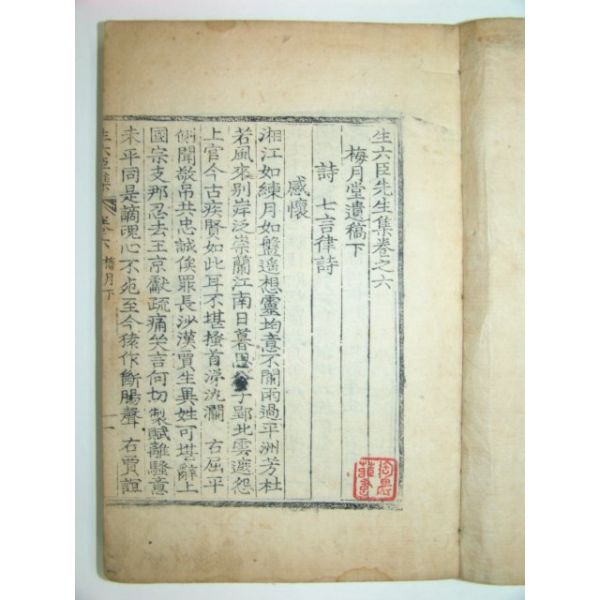 生六臣先生集卷之六
梅月堂遺稿下
詩 七言律詩
感懷
湘江如練月如盤遙想靈均意不闌雨過平洲芳杜
若風來別岸泛崇蘭江南日暮思公子郢北雲遮怨
上官今古疾賢如此耳不堪搔首淚汍瀾 右屈平
側聞敬吊共忠誠俟罪長沙漢賈生異姓可堪辭上
國宗支那忍去王京獻疏痛哭言何切製賦離騷意
未平同是謫魂心不死至今猿作斷腸聲 右賈誼
生六臣集 卷六 梅月下 一